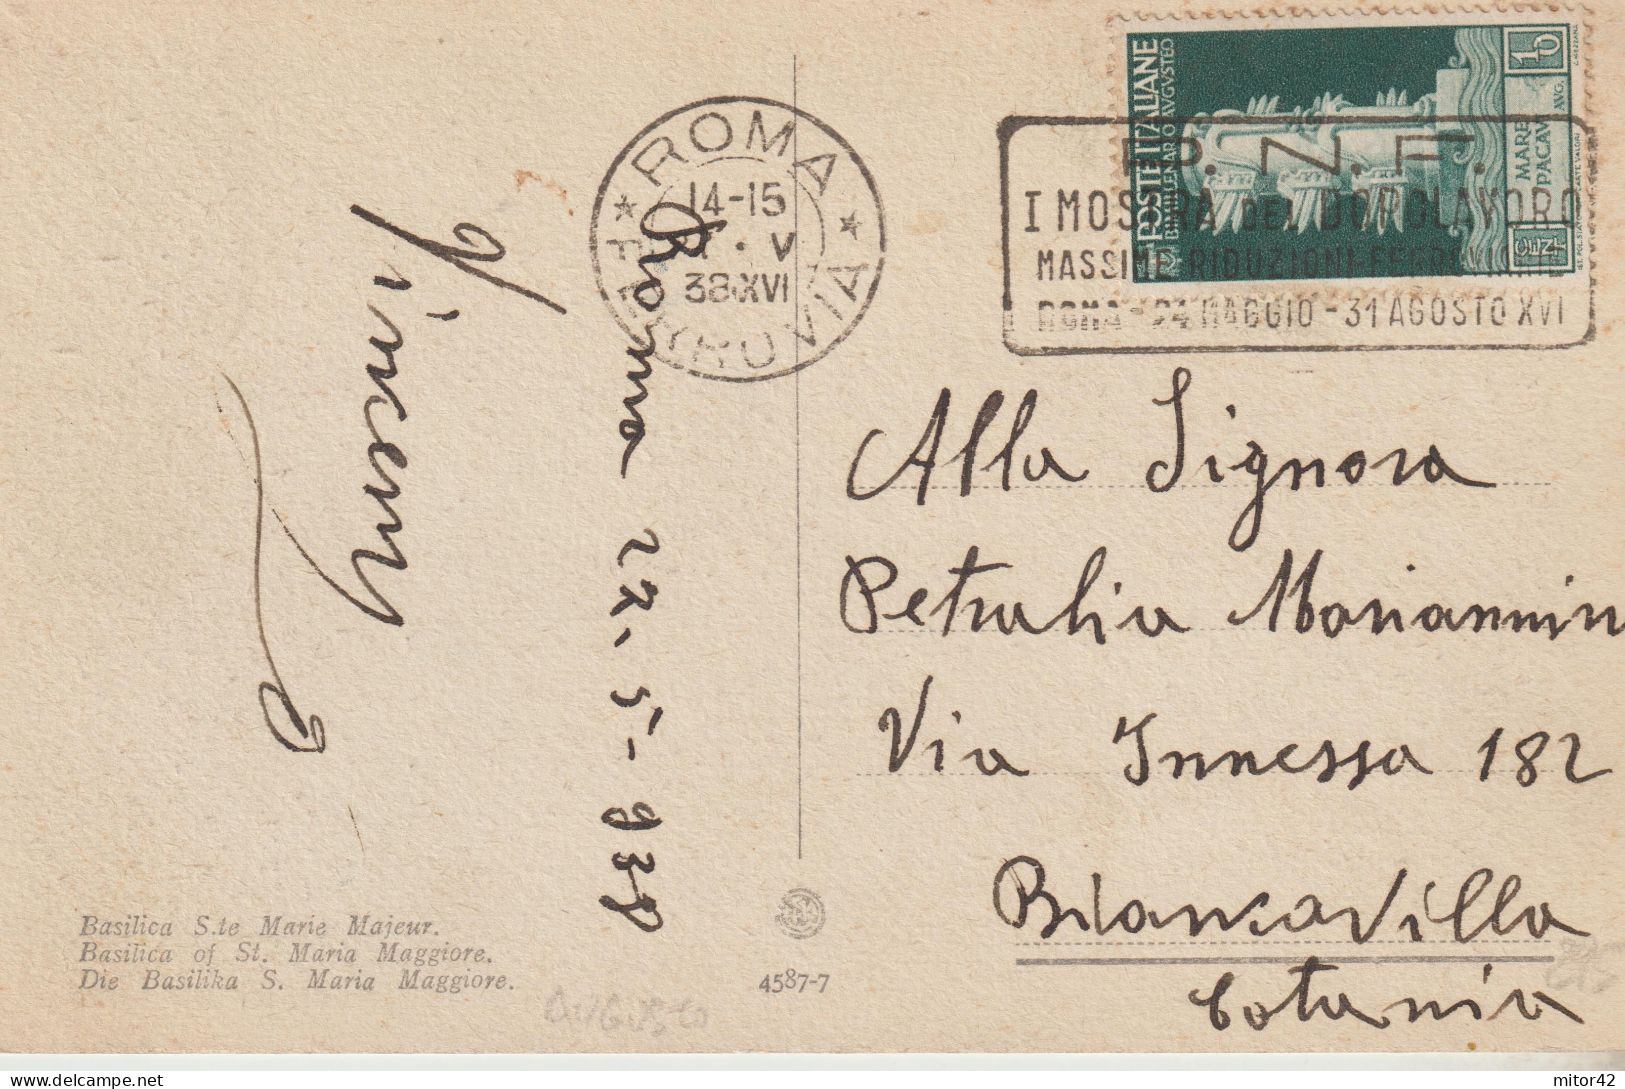 POSTE ITALIANE
BIMILLENARIO AUGVSTEO
MARE
PACAVI
AVG.
10
CENT
ROMA
14-15
V
38 XVI
FERROVIA
P. N. F.
I MOSTRA DEL DOPOLAVORO
MASSIME RIDUZIONI
ROMA - 24 MAGGIO - 31 AGOSTO XVI
Roma 27.5-938
Alla Signora
Petralia Mariannin
Via Innessa 182
Biancavilla
Catania
Basilica S.te Marie Majeur.
Basilica of St. Maria Maggiore.
Die Basilika S. Maria Maggiore.
4587-7
AUGUSTO
mitor42
delcampe.net